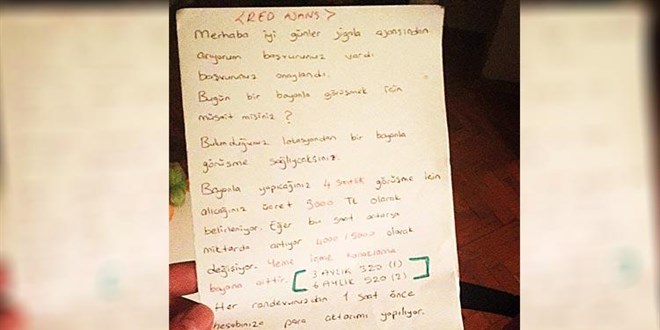 <RED AJANS>
Merhaba iyi günler jigolo ajansından
arıyorum başvurunuz vardı
başvurunuz onaylandı.
Bugün bir bayanla görüşmek için
müsait misiniz ?
Bulunduğunuz lokasyondan bir bayanla
görüşme sağlıycaksınız.
Bayanla yapıcağınız 4 saatlik görüşme için
alıcağınız ücret 3000 TL olarak
belirleniyor. Eğer bu saat artarsa
miktarda artıyor 4000 / 5000 olarak
değişiyor. Yeme içme konaklama
bayana aittir. [3 AYLIK 320 (1)
6 AYLIK 520 (2)]
Her randevunuzdan 1 saat önce
hesabınıza para aktarımı yapılıyor.